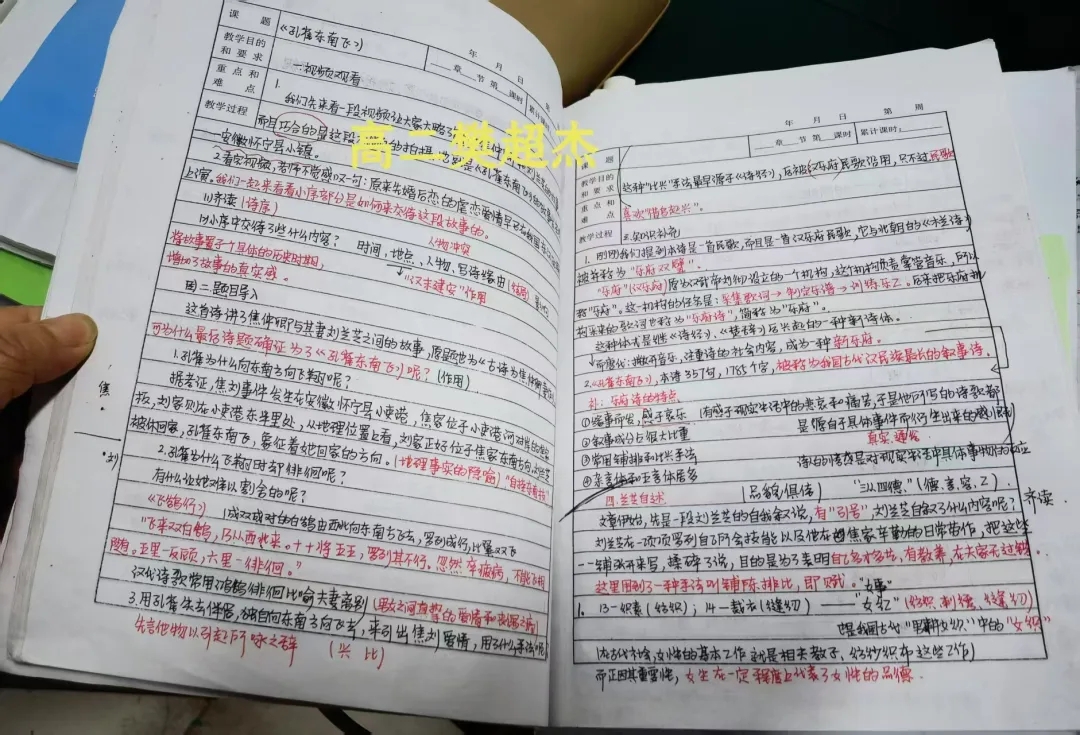 课 题
《孔雀东南飞》
年 月 日
教学目的
和 要 求
一.视频观看
章 节 第 课时 累计
重 点 和
难 点
1.
教学过程
我们先来看一段视频让大家大略了
而且巧合的是这段
安徽怀宁县小镇。
2.看完视频,老师不觉感叹一句:原来先婚后恋的虐恋爱情早已在
上演。我们一起来看看小序部分是如何来交待这段故事的。
(1)齐读(诗序)
人物冲突
(2)小序中交待了些什么内容? 时间,地点,人物,写诗缘由
将故事置于个具体的历史时期,
增加了故事的真实感。
"汉末建安"作用
二.题目导入
这首诗讲了焦仲卿与其妻刘兰芝之间的故事,原题也为《古诗为焦仲卿
可为什么最后诗题确证为了《孔雀东南飞》呢?(作用)
1.孔雀为什么向东南方向飞翔呢?
据考证,焦刘事件发生在安徽怀宁县小吏港,焦家位于小吏港河对岸
刘家则在小吏港东半里处,从地理位置上看,刘家正好位于焦家东南方
被休回家,孔雀东南飞,象征着她回家的方向。(地理事实的隐喻)"自挂东南枝"
焦
刘
2.孔雀为什么飞翔时却徘徊呢?
有什么让她难以割舍的呢?
《飞鹄行》
(成双成对的白鹄由西北向东南方飞去,罗列成行,比翼双飞
"飞来双白鹄,乃从西北来。十十将五五,罗列其不行。忽然卒被病,不能飞相
随。五里一反顾,六里一徘徊。"
汉代诗歌常用鸿鹄徘徊比喻夫妻离别
3.用孔雀失去伴侣,独自向东南方向飞去,来引出焦刘爱情,用了什么手法
先言他物以引起所咏之辞 (兴 比)
年 月 日 第 周
章 节 第 课时 累计课时:
课 题
教学目的
和 要 求
这种"比兴"手法最早源于《诗经》,后被汉乐府民歌沿用,只不过民歌
重 点 和
难 点
喜欢"借鸟起兴"。
教学过程
三.知识补充
1.刚刚我们提到本诗是一首民歌,而且是一首汉乐府民歌,它与北朝的《木兰诗》
被并称为"乐府双璧"。
"乐府"(汉乐府)原为汉武帝刘彻设立的一个机构,这个机构负责掌管音乐,所以
称"乐府"。这一机构的任务是:采集歌词→制定乐谱→训练乐工。后来把乐府
搜来的歌词也称为"乐府诗",简称为"乐府"。
这种体式是继《诗经》、《楚辞》后兴起的一种新诗体。
而唐代:撇开音乐,注重诗的社会内容,成为一种新乐府。
2.《孔雀东南飞》,本诗357句,1785个字,被称为我国古代汉民族最长的叙事诗。
补:乐府诗的特点
①缘事而发,感于哀乐 (有感于现实生活中的悲哀和痛苦,于是他们写的诗歌都
②叙事成分占很大比重 是源自于具体事件而衍生出来的感慨
真实、通俗
③常用铺排和比兴手法 诗的情感是对现实生活中具体事物的反应
④杂言体和五言体居多
四.兰芝自述 (品貌俱佳) "三从四德."(德、言、容、工)
文章伊始,先是一段刘兰芝的自我叙说,有"引号",刘兰芝自叙了什么内容呢?齐读
刘兰芝在一项项罗列自己所会技能以及他在焦家辛勤的日常劳作,把这些
一一铺张开来写,揉碎了说,目的是为了表明自己多才多艺,有教养,在夫家无过错。
这里用到了一种手法叫铺陈排比,即赋。"女事"
1. 13-织素(纺织);14-裁衣(缝纫)——"女红"(纺织、刺绣、缝纫)
也是我国古代"男耕女织"中的"女织"
(古代社会,女性的基本工作就是相夫教子、纺纱织布这些工作)
而正因其重要性,女红在一定程度上代表了女性的品德.
高二樊超杰